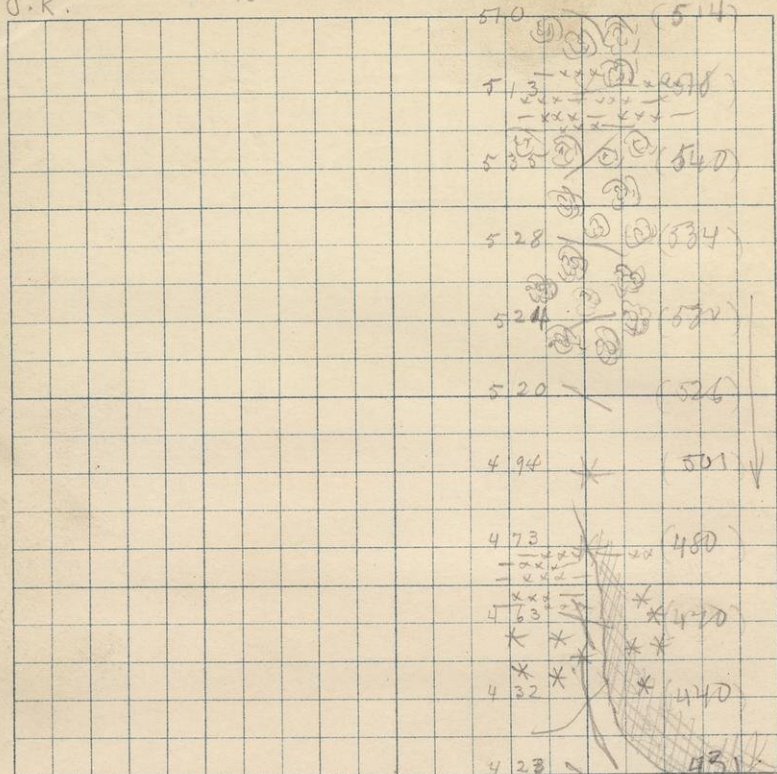 J.R.
510 (514)
513 518
535 (540)
528 (534)
524 (530)
520 (526)
494 (501
473 (480)
463 (470)
432 (440)
423 431